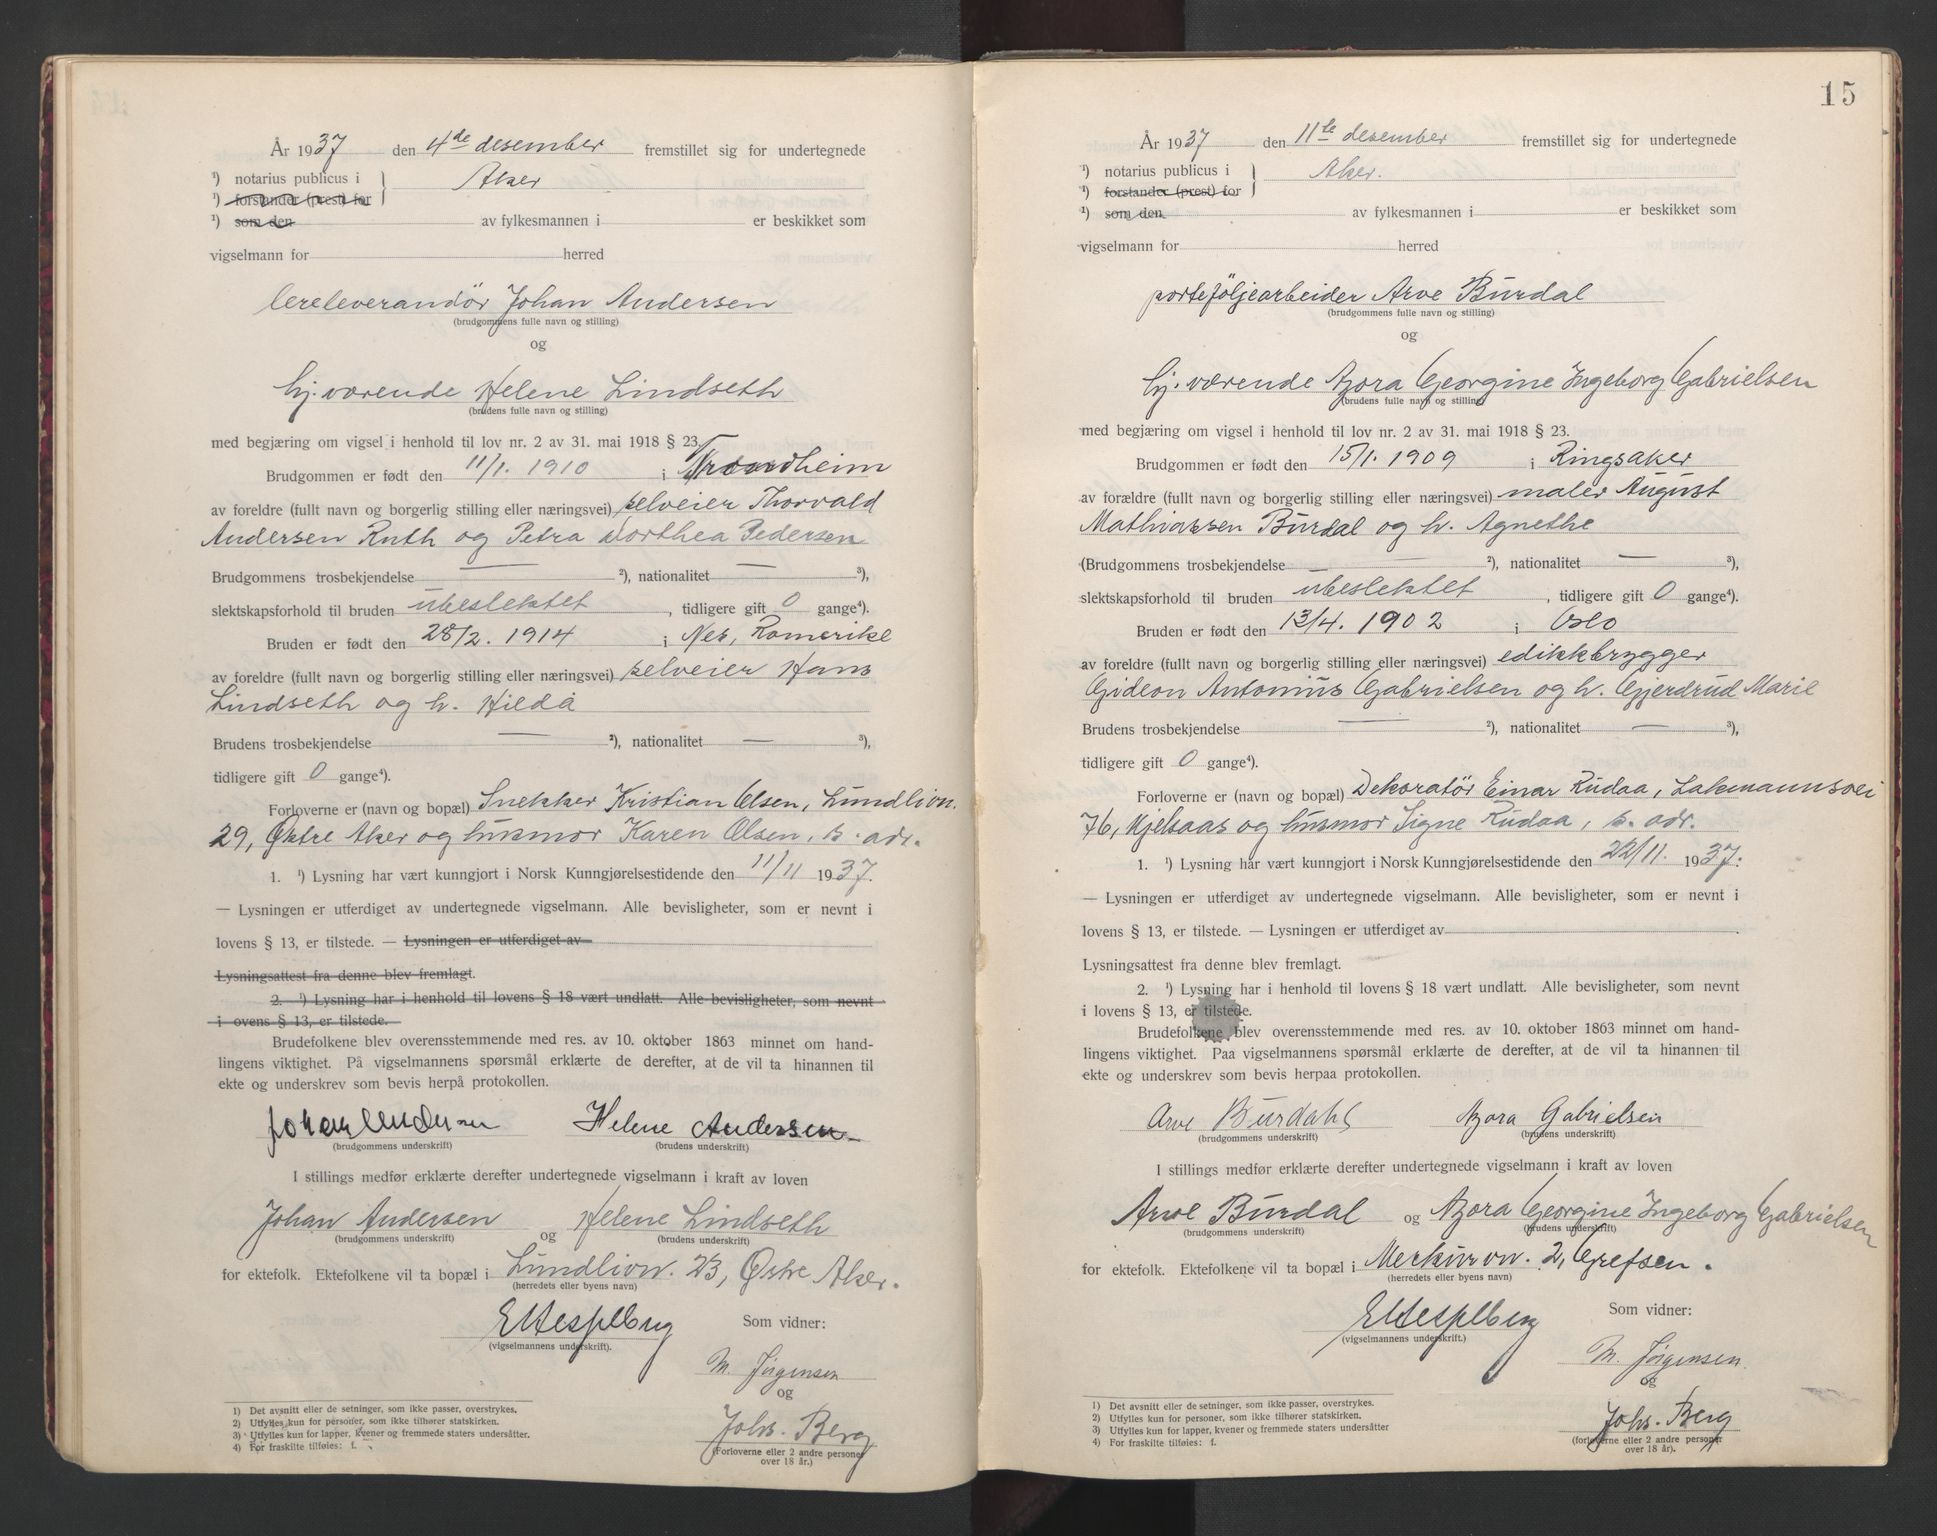 År 1937 den 4de desember fremstillet sig for undertegnede
¹) notarius publicus i Aker
¹) forstander (prest) for
¹) som den av fylkesmannen i er beskikket som
vigselmann for herred
lereleverandör Johan Andersen
(brudgommens fulle navn og stilling)
og
hj.værende Helene Lindseth
(brudens fulle navn og stilling)
med begjæring om vigsel i henhold til lov nr. 2 av 31. mai 1918 § 23.
Brudgommen er født den 11/1. 1910 i Trondheim
av foreldre (fullt navn og borgerlig stilling eller næringsvei) selveier Thorvald
Andersen Ruth og Petra Dorthea Pedersen
Brudgommens trosbekjendelse — ²), nationalitet — ³),
slektskapsforhold til bruden ubeslektet, tidligere gift 0 gange⁴).
Bruden er født den 28/2. 1914 i Nes, Romerike
av foreldre (fullt navn og borgerlig stilling eller næringsvei) selveier Hans
Lindseth og h. Hilda
Brudens trosbekjendelse — ²), nationalitet — ³),
tidligere gift 0 gange⁴).
Forloverne er (navn og bopæl) Snekker Kristian Olsen, Lundlivn.
29, Østre Aker og husmor Karen Olsen, s. adr.
1. ¹) Lysning har vært kunngjort i Norsk Kunngjørelsestidende den 11/11 1937.
— Lysningen er utferdiget av undertegnede vigselmann. Alle bevisligheter, som er nevnt i
lovens § 13, er tilstede. — Lysningen er utferdiget av
Lysningsattest fra denne blev fremlagt.
2. ¹) Lysning har i henhold til lovens § 18 vært undlatt. Alle bevisligheter, som nevnt
i ovens § 13, er tilstede.
Brudefolkene blev overensstemmende med res. av 10. oktober 1863 minnet om hand-
lingens viktighet. På vigselmannens spørsmål erklærte de derefter, at de vil ta hinannen til
ekte og underskrev som bevis herpå protokollen.
Johan Andersen Helene Andersen
(brudgommens underskrift) (brudens underskrift)
I stillings medfør erklærte derefter undertegnede vigselmann i kraft av loven
Johan Andersen og Helene Lindseth
(brudgommens underskrift) (brudens underskrift)
for ektefolk. Ektefolkene vil ta bopæl i Lundlivn. 23, Østre Aker.
(herredets eller byens navn)
Som vidner:
(vigselmannens underskrift).
M. Jörgensen
og
Johs. Berg
(Forloverne eller 2 andre personer
over 18 år.)
1) Det avsnitt eller de setninger, som ikke passer, overstrykes.
2) Utfylles kun for personer, som ikke tilhører statskirken.
3) Utfylles kun for lapper, kvener og fremmede staters undersåtter.
4) For fraskilte tilføies: f.
15
År 1937 den 11te desember fremstillet sig for undertegnede
¹) notarius publicus i Aker.
¹) forstander (prest) for
¹) som den av fylkesmannen i er beskikket som
vigselmann for herred
porteföljearbeider Arve Burdal
(brudgommens fulle navn og stilling)
og
hj.værende Azora Georgine Ingeborg Gabrielsen
(brudens fulle navn og stilling)
med begjæring om vigsel i henhold til lov nr. 2 av 31. mai 1918 § 23.
Brudgommen er født den 15/1. 1909 i Ringsaker
av forældre (fullt navn og borgerlig stilling eller næringsvei) maler August
Mathiassen Burdal og h. Agnethe
(Brudgommens trosbekjendelse — ²), nationalitet — ³),
slektskapsforhold til bruden ubeslektet, tidligere gift 0 gange⁴).
Bruden er født den 13/4. 1902 i Oslo
av foreldre (fullt navn og borgerlig stilling eller næringsvei) edikkbrygger
Gideon Antonius Gabrielsen og h. Gjerdrud Marie
Brudens trosbekjendelse — ²), nationalitet — ³),
tidligere gift 0 gange⁴).
Forloverne er (navn og bopæl) Dekoratör Einar Rudaa, Lakmannsvei
76, Kjelsaas og husmor Signe Rudaa, s. adr.
1. ¹) Lysning har vært kunngjort i Norsk Kunngjørelsestidende den 22/11. 1937.
— Lysningen er utferdiget av undertegnede vigselmann. Alle bevisligheter, som er nevnt i
lovens § 13, er tilstede. — Lysningen er utferdiget av
Lysningsattest fra denne blev fremlagt.
2. ¹) Lysning har i henhold til lovens § 18 vært undlatt. Alle bevisligheter, som nevnt
i lovens § 13, er tilstede.
Brudefolkene blev overensstemmende med res. av 10. oktober 1863 minnet om hand-
lingens viktighet. Paa vigselmannens spørsmål erklærte de derefter, at de vil ta hinannen til
ekte og underskrev som bevis herpaa protokollen.
Arve Burdahl Azora Gabrielsen
(brudgommens underskrift) (brudens underskrift)
I stillings medfør erklærte derefter undertegnede vigselmann i kraft av loven
Arve Burdal og Azora Georgine Ingeborg Gabrielsen
(brudgommens underskrift) (brudens underskrift)
for ektefolk. Ektefolkene vil ta bopæl i Merkurvn. 2, Grefsen.
(herredets eller byens navn)
Som vidner:
(vigselmannens underskrift.)
M. Jörgensen
og
Johs. Berg
(forloverne eller 2 andre personer
over 18 år).
1) Det avsnitt eller de setninger, som ikke passer, overstrykes.
2) Utfylles kun for personer, som ikke tilhører statskirken.
3) Utfylles kun for lapper, kvener og fremmede staters undersåtter
4) For fraskilte tilføies: f.